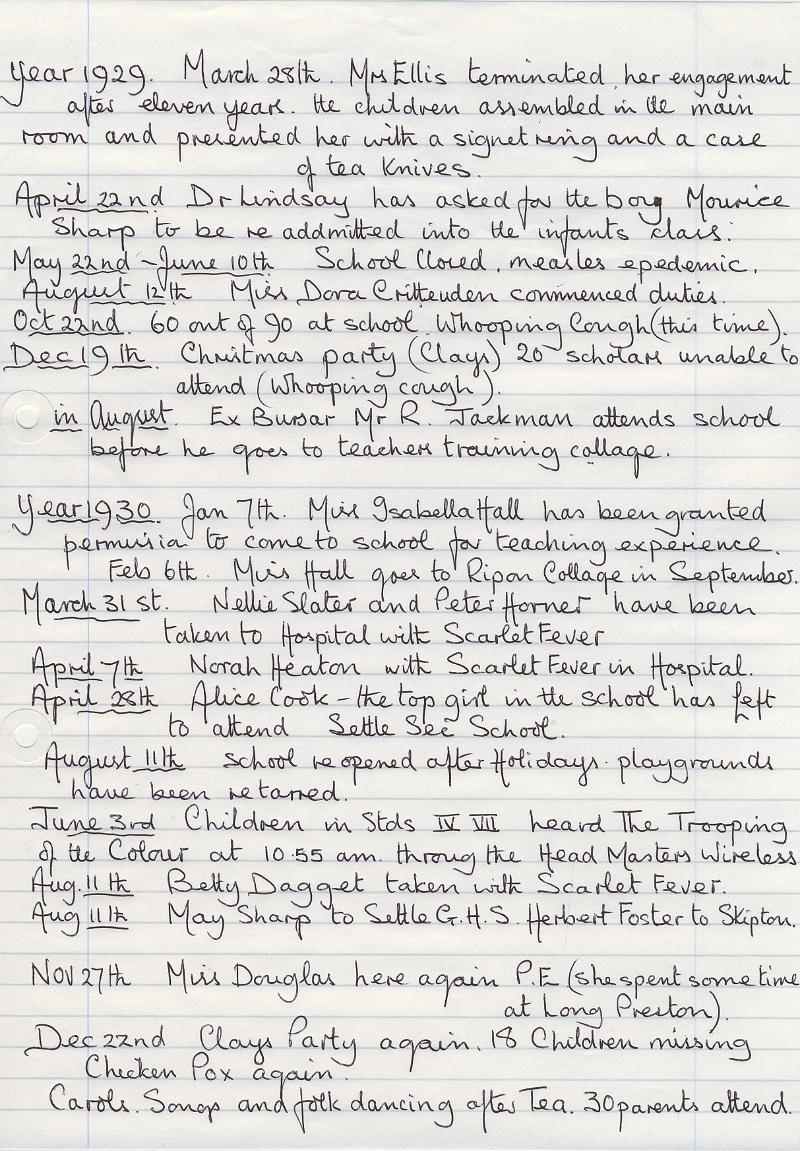 Year 1929. March 28th. Mrs Ellis terminated her engagement
after eleven years. The children assembled in the main
room and presented her with a signet ring and a case
of tea knives.
April 22nd Dr Lindsay has asked for the boy Mourice
Sharp to be re addmitted into the infants class.
May 22nd - June 10th School Closed, measles epedemic.
August 12th Miss Dora Crittenden commenced duties.
Oct 22nd. 60 out of 90 at school. Whooping Cough (this time).
Dec 19th. Christmas party (Clays) 20 scholars unable to
attend (Whooping cough).
in August. Ex Bursar Mr R. Jackman attends school
before he goes to teachers training collage.
Year 1930. Jan 7th. Miss Isabella Hall has been granted
permissia to come to school for teaching experience.
Feb 6th. Miss Hall goes to Ripon Collage in September.
March 31st. Nellie Slater and Peter Horner have been
taken to Hospital with Scarlet Fever
April 7th Norah Heaton with Scarlet Fever in Hospital.
April 28th Alice Cook - the top girl in the school has left
to attend Settle Sec School.
August 11th school re opened after Holidays. playgrounds
have been retarred.
June 3rd Children in Stds IV VII heard The Trooping
of the Colour at 10.55 am. throug the Head Masters Wireless
Aug. 11th Betty Dagget taken with Scarlet Fever.
Aug 11th May Sharp to Settle G.H.S. Herbert Foster to Skipton.
Nov 27th Miss Douglas here again P.E (she spent some time
at Long Preston).
Dec 22nd Clays Party again. 18 Children missing
Chicken Pox again.
Carols. Songs and folk dancing after Tea. 30 parents attend.